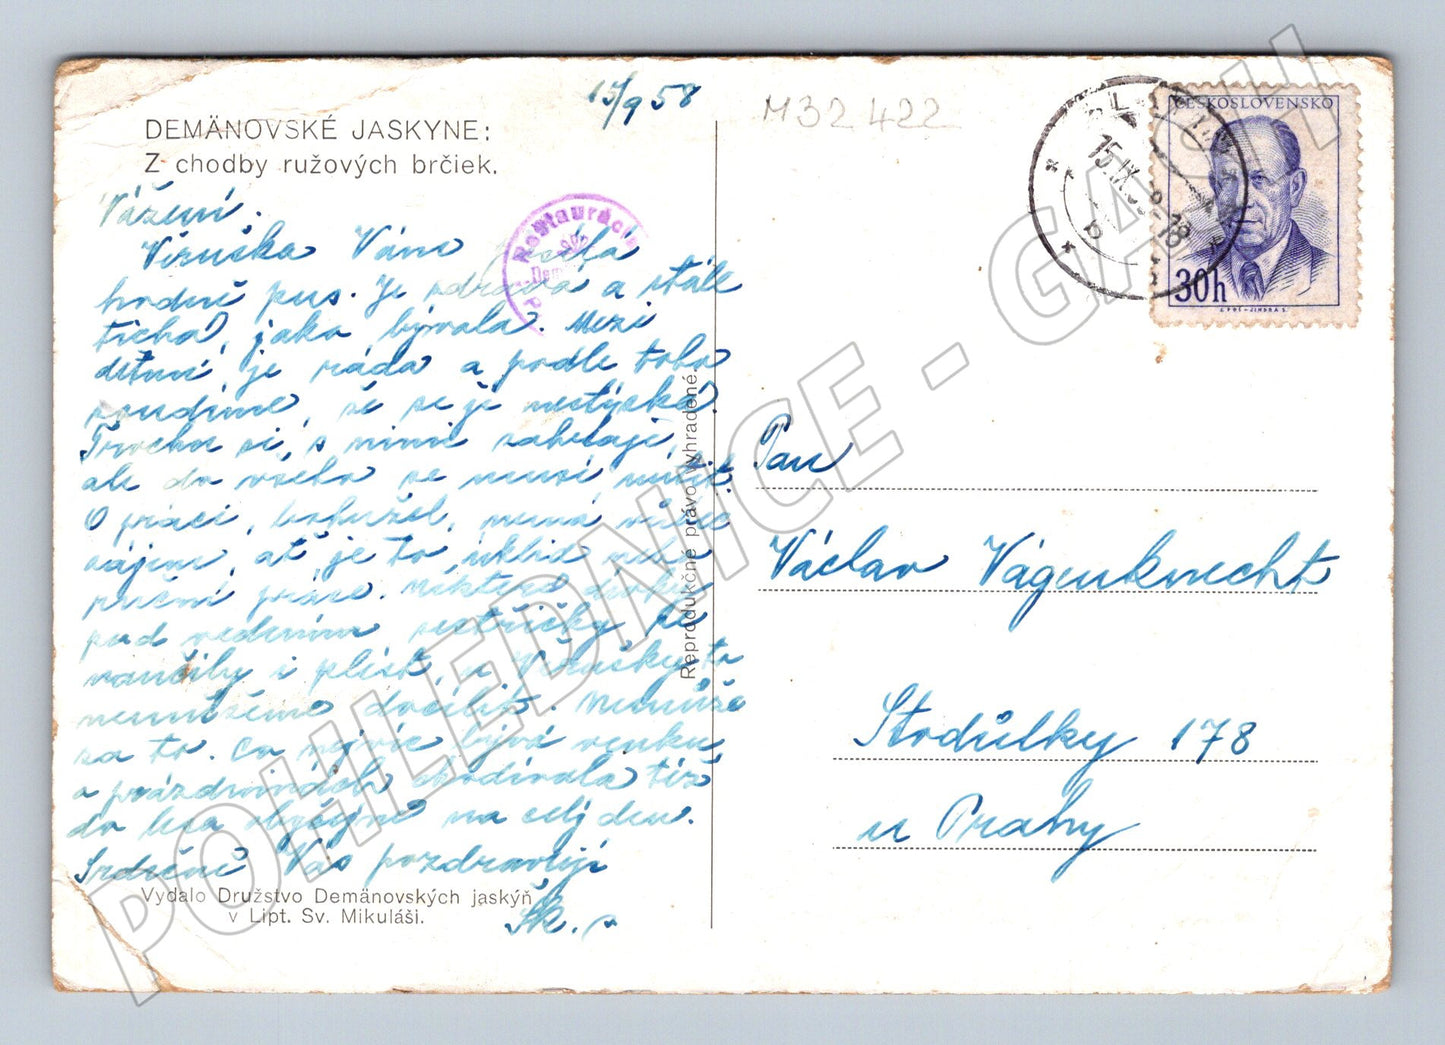 15/9 58
M32422
DEMÄNOVSKÉ JASKYNE:
Z chodby ružových brčiek.
Vážení.
Viruška Vám posílá
hodně pus. Je zdravá a stále
tichá, jako bývala. Mezi
dětmi je ráda a podle toho
soudíme, že se jí nestýská
Trochu si s nimi zahrají,
ale do všeho se musí nutit.
O práci, bohužel, nemá vůbec
zájem, ať je to úklid nebo
ruční práce. Některé dívky
pod vedením sestřičky se
naučily i plést, u Virušky to
nemůžeme docílit. Nemůže
za to. Co nejvíc bývá venku,
o prázdninách chodívala též
do lesa obyčejně na celý den.
Srdečně Vás pozdravují
Vydalo Družstvo Demänovských jaskýň
v Lipt. Sv. Mikuláši.
Reprodukčné právo vyhradené.
Restaurácia
ČESKOSLOVENSKO
30h
15.IX.
Pan
Václav Vágenknecht
Stodůlky 178
u Prahy
POHLEDNICE - GASH